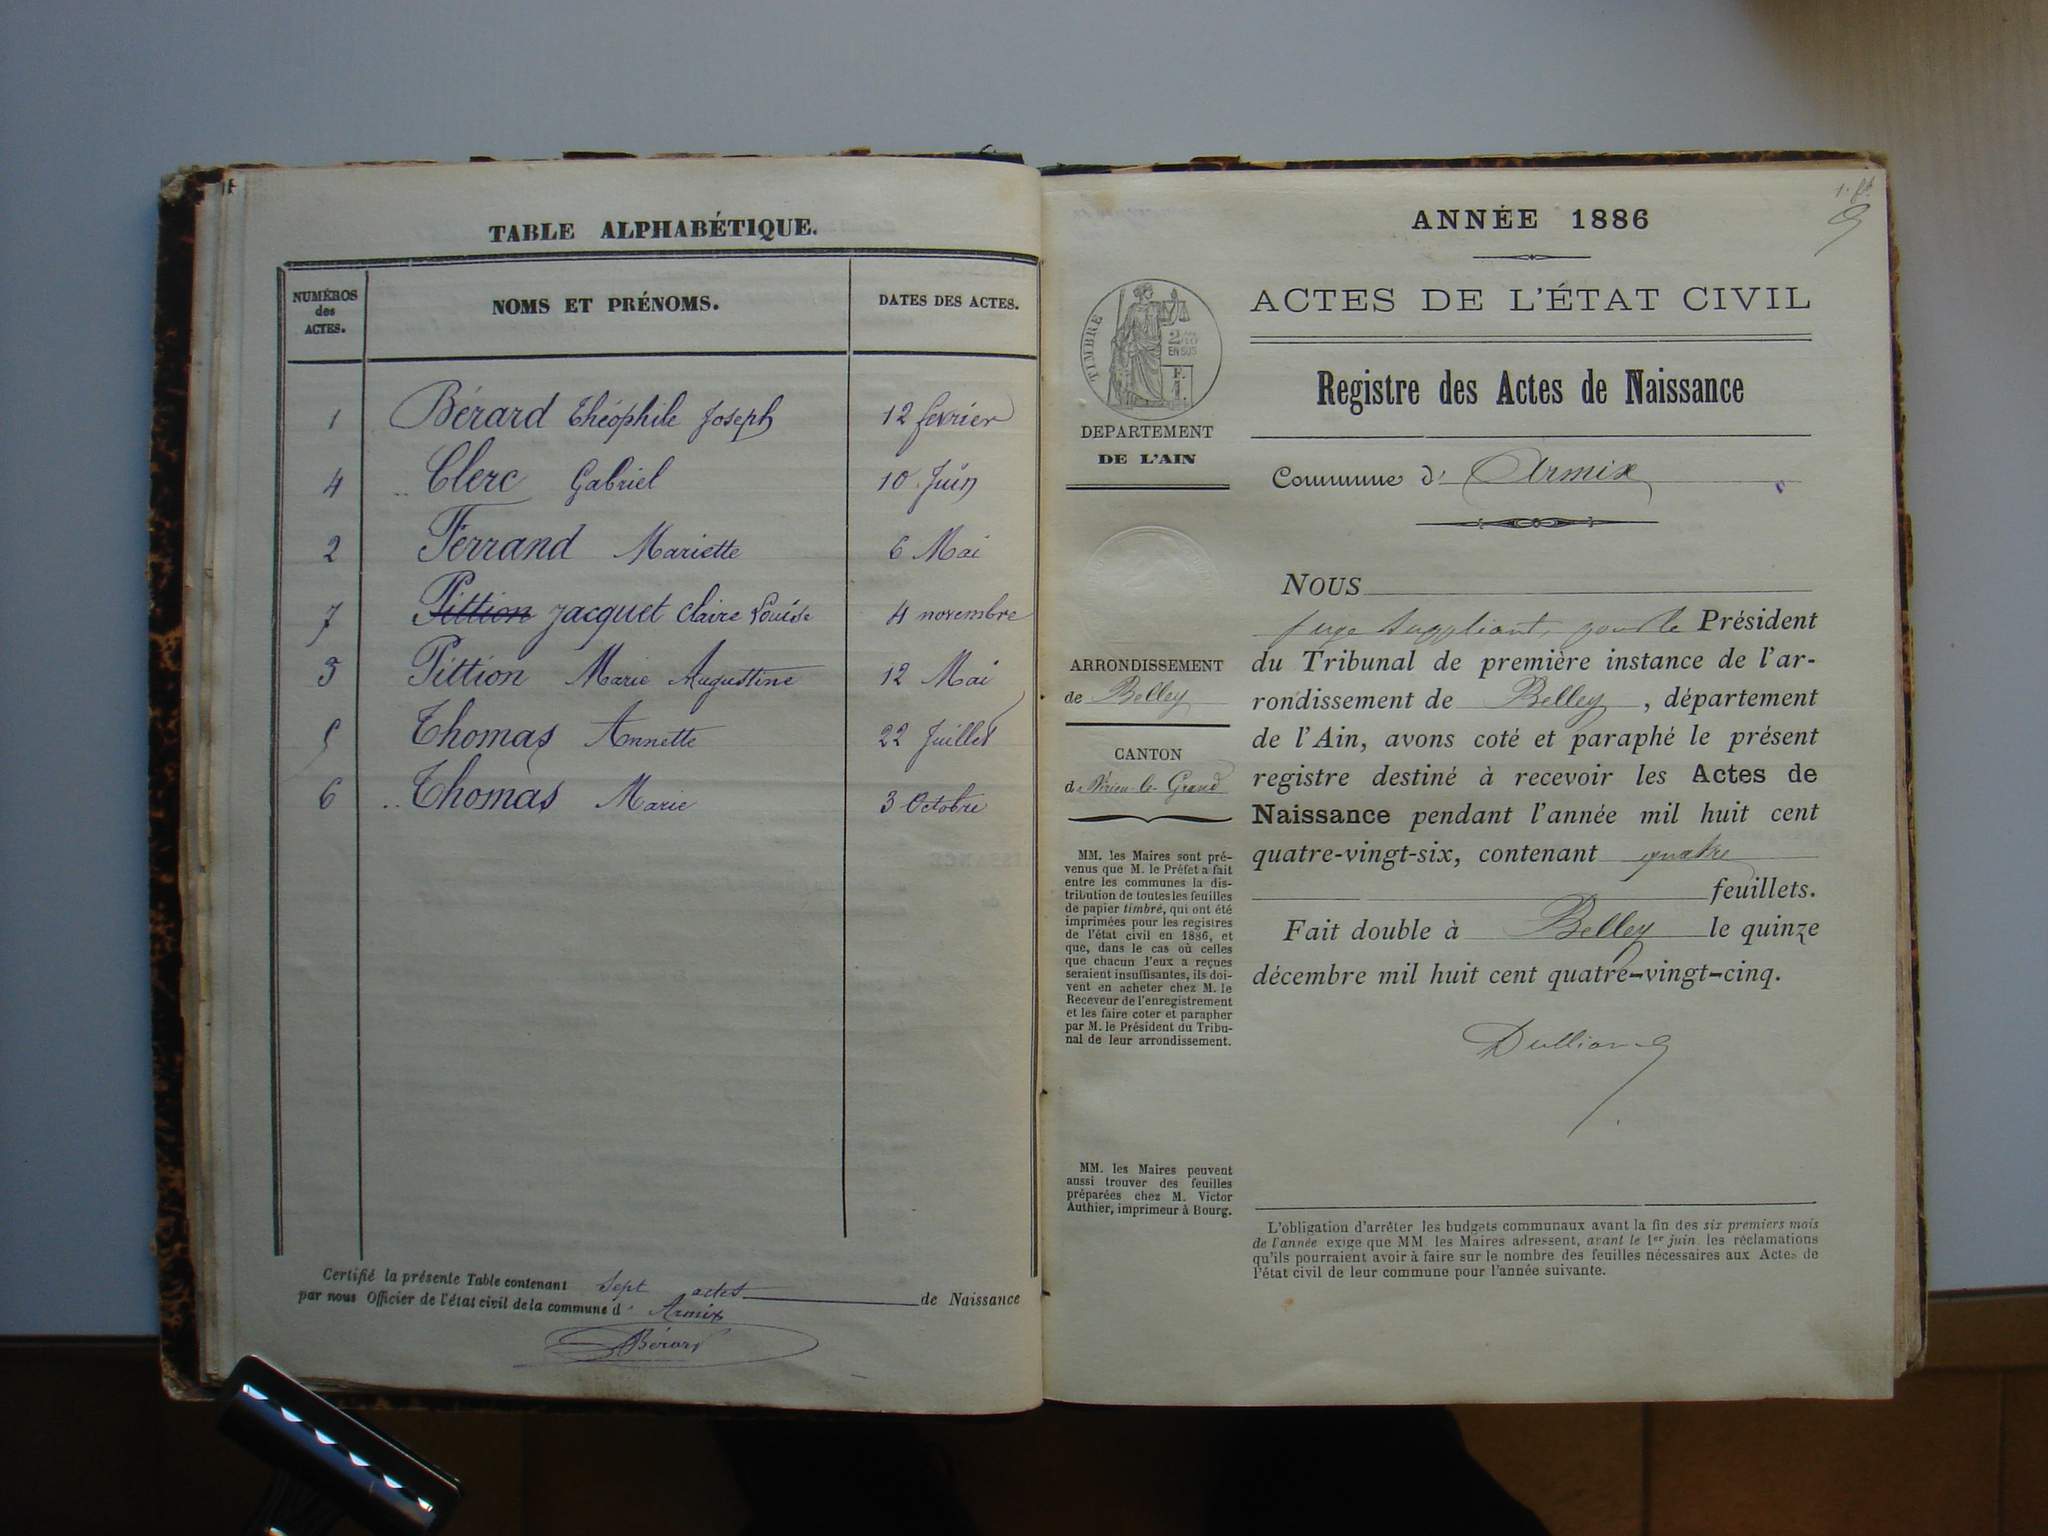 TABLE ALPHABÉTIQUE.
NUMÉROS
des
ACTES.
NOMS ET PRÉNOMS.
DATES DES ACTES.
1 Bérard Théophile Joseph 12 fevrier
4 Clerc Gabriel 10 Juin
2 Ferrand Mariette 6 Mai
7 Pittion Jacquet Claire Louise 4 novembre
3 Pittion Marie Augustine 12 Mai
5 Thomas Annette 22 Juillet
6 Thomas Marie 3 Octobre
Certifié la présente Table contenant sept actes de Naissance
par nous Officier de l'état civil de la commune d' Armix
Bérard
ANNÉE 1886
ACTES DE L'ÉTAT CIVIL
Registre des Actes de Naissance
Commune d' Armix
TIMBRE
2/10
EN SUS
F.
1
DEPARTEMENT
DE L'AIN
ARRONDISSEMENT
de Belley
CANTON
de Virieu-le-Grand
MM. les Maires sont pré-
venus que M. le Préfet a fait
entre les communes la dis-
tribution de toutes les feuilles
de papier timbré, qui ont été
imprimées pour les registres
de l'état civil en 1886, et
que, dans le cas où celles
que chacun l'eux a reçues
seraient insuffisantes, ils doi-
vent en acheter chez M. le
Receveur de l'enregistrement
et les faire coter et parapher
par M. le Président du Tribu-
nal de leur arrondissement.
MM. les Maires peuvent
aussi trouver des feuilles
préparées chez M. Victor
Authier, imprimeur à Bourg.
NOUS
juge suppléant, pour le Président
du Tribunal de première instance de l'ar-
rondissement de Belley, département
de l'Ain, avons coté et paraphé le présent
registre destiné à recevoir les Actes de
Naissance pendant l'année mil huit cent
quatre-vingt-six, contenant quatre
feuillets.
Fait double à Belley le quinze
décembre mil huit cent quatre-vingt-cinq.
L'obligation d'arrêter les budgets communaux avant la fin des six premiers mois
de l'année exige que MM. les Maires adressent, avant le 1er juin les réclamations
qu'ils pourraient avoir à faire sur le nombre des feuilles nécessaires aux Actes de
l'état civil de leur commune pour l'année suivante.